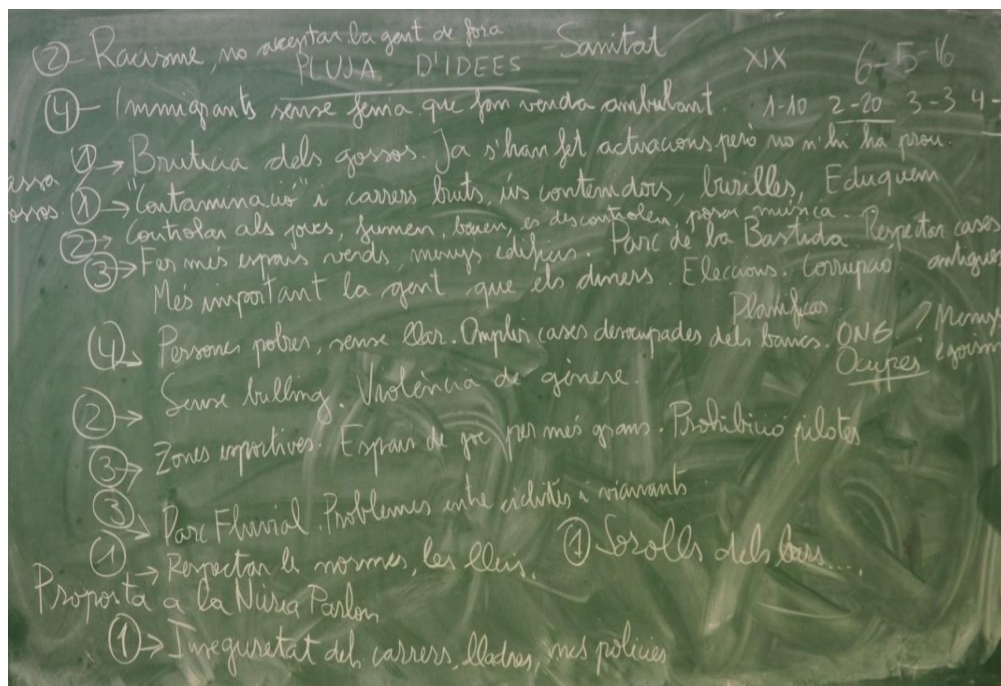 ② - Racisme, no acceptar la gent de fora - Sanitat
PLUJA D'IDEES XIX 6-5-16
④ - Immigrants sense feina que fan venda ambulant. 1-10 2-20 3-3 4-
① → Brutícia dels gossos. Ja s'han fet actuacions però no n'hi ha prou.
① → "Contaminació" i carrers bruts, ús contenidors, burilles, Eduquem
② → Controlar als joves, fumen, beuen, es descontrolen, posen música.
③ → Fer més espais verds, menys edificis. Parc de la Bastida. Respectar cases antigues
Més important la gent que els diners. Eleccions. Corrupció.
Planificar
④ → Persones pobres, sense llar. Omplir cases desocupades dels bancs. ONG ? Menys
Ocupes egoisme
② → Sense bulling. Violència de gènere.
③ → Zones esportives. Espais de joc per més grans. Prohibició pilotes
③ → Parc Fluvial. Problemes entre ciclistes i vianants
① → Respectar le normes, les lleis. ① Sorolls dels bars....
Proposta a la Núria Parlon
① → Inseguretat dels carrers, lladres, més policies